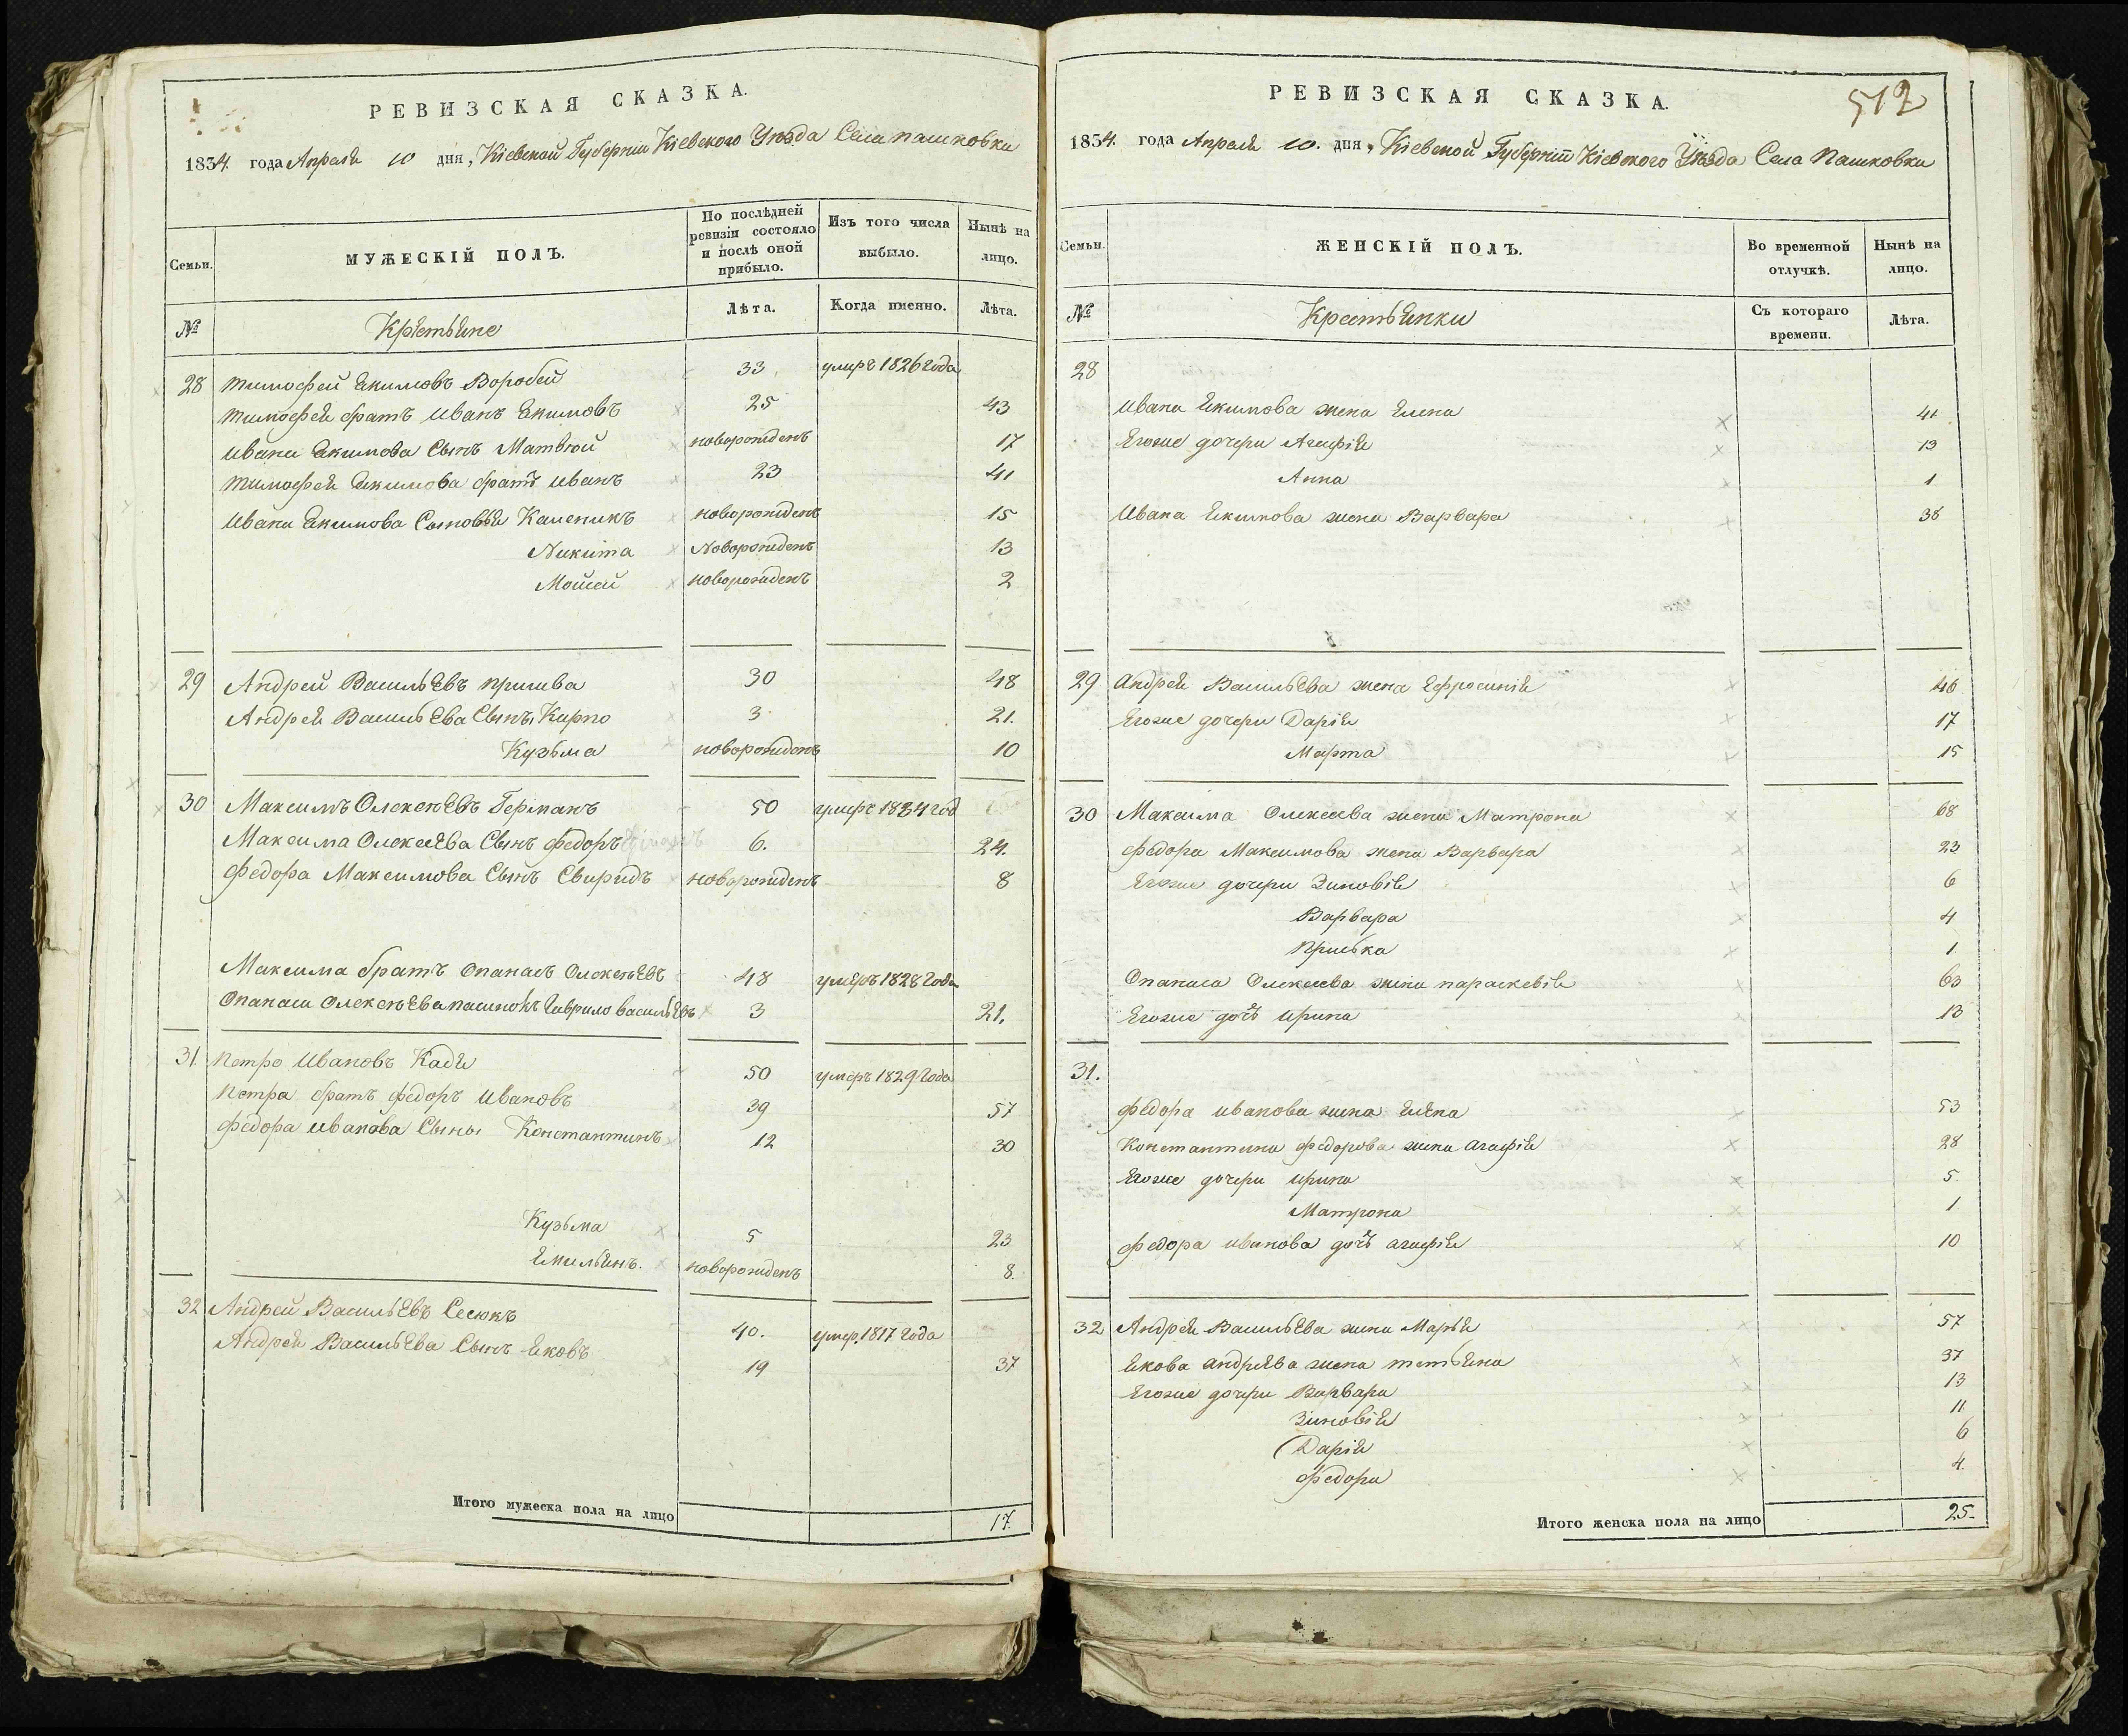 РЕВИЗСКАЯ СКАЗКА.
1834. года Апреля 10 дня, Кіевской Губерніи Кіевского Уѣзда Села Пашковки
Семьи.
МУЖЕСКІЙ ПОЛЪ.
По послѣдней ревизіи состояло и послѣ оной прибыло.
Изъ того числа выбыло.
Нынѣ на лицо.
№
Крестьяне
Лѣта.
Когда именно.
Лѣта.
28 Тимофей Екимовъ Воробей 33 умръ 1826 года
Тимофея братъ Иванъ Екимовъ 25 43
Ивана Екимова Сынъ Матвѣй новорожденъ 17
Тимофея Екимова братъ Иванъ 23 41
Ивана Екимова Сыновья Каленикъ новорожденъ 15
Никита Новорожденъ 13
Мойсей новорожденъ 2
29 Андрей Васильевъ 30 48
Андрея Васильева Сыны Карпо 3 21.
Кузьма новорожденъ 10
30 Максимъ Олексѣевъ Германъ 50 умеръ 1834 год
Максима Олексеева Сынъ Федоръ 6. 24.
Федора Максимова Сынъ Свиридъ новорожденъ 8
Максима братъ Опанасъ Олексѣевъ 48 умеръ 1828 года
Опанаса Олексѣева пасинокъ Гаврило Васильевъ 3 21.
31. Петро Ивановъ 50 умеръ 1829 года
Петра братъ Федоръ Ивановъ 39 57
Федора Иванова Сыны Константинъ 12 30
Кузьма 5 23
Емильянъ. новорожденъ 8.
32 Андрей Васильевъ Сесюкъ 40. умер. 1817 года
Андрея Васильева Сынъ Яковъ 19 37
Итого мужеска пола на лицо 17.
РЕВИЗСКАЯ СКАЗКА.
512
1834. года Апреля 10. дня, Кіевской Губерніи Кіевского Уѣзда Села Пашковки
Семьи.
ЖЕНСКІЙ ПОЛЪ.
Во временной отлучкѣ.
Нынѣ на лицо.
№
Крестьянки
Съ котораго времени.
Лѣта.
28
Ивана Екимова жена Елена 41
Егоже дочери Агафія 13
Анна 1
Ивана Екимова жена Варвара 38
29 Андрея Васильева жена Ефросинія 46
Егоже дочери Дарія 17
Марта 15
30 Максима Олексеева жена Матрона 68
Федора Максимова жена Варвара 23
Егоже дочери Зиновія 6
Варвара 4
Приська 1.
Опанаса Олексеева жена Параскевія 63
Егоже дочъ Ирина 13
31.
Федора Иванова жена Елена 53
Константина Федорова жена Агафія 28
Егоже дочери Ирина 5.
Матрона 1
Федора Иванова дочъ Агафія 10
32 Андрея Васильева жена Марья 57
Якова Андреева жена Тетьяна 37
Егоже дочери Варвара 13
Зиновія 11
Дарія 6
Федора 4.
Итого женска пола на лицо 25.